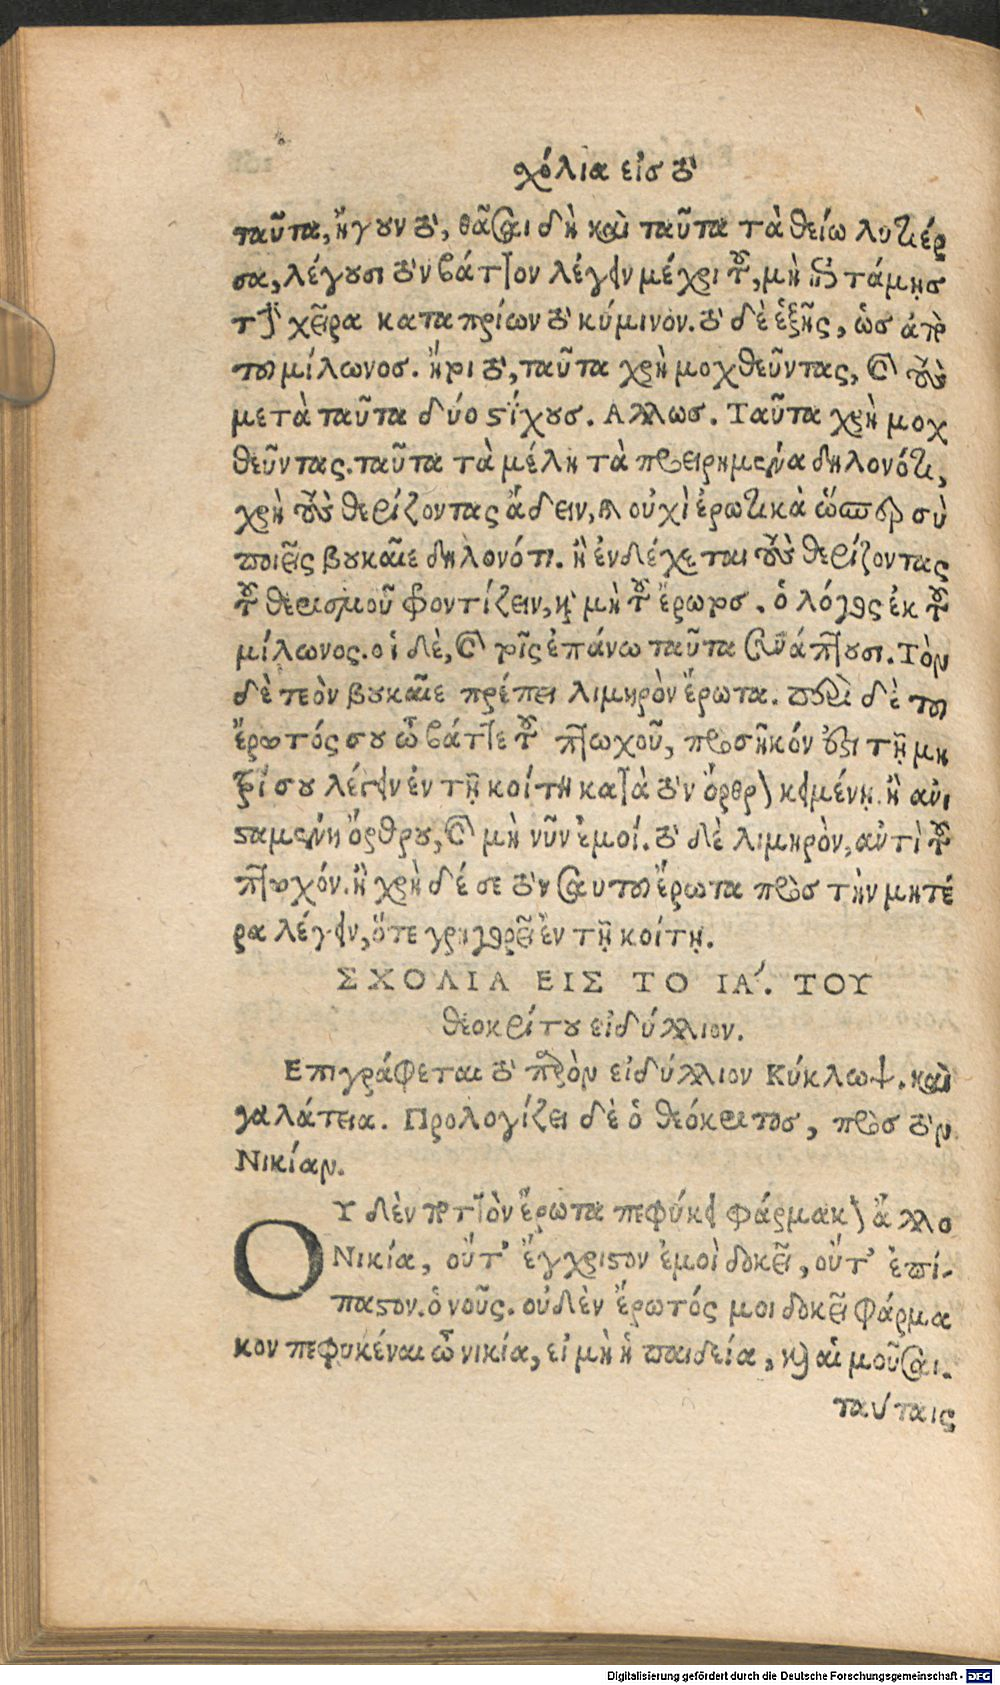 χόλια εἰς τὸ
ταῦτα, ἤγουν τὸ, θᾶσαι δὴ καὶ ταῦτα τὰ θείω λυτιέρ
σα, λέγουσι τὸν βάττον λέγειν μέχρι τοῦ, μὴ ἐπιτάμῃς
τὴν χεῖρα καταπρίων τὸ κύμινον. τὸ δὲ ἑξῆς, ὡς ἀπὸ
τοῦ μίλωνος. ἤρι τὸ, ταῦτα χρὴ μοχθεῦντας, καὶ τοὺς
μετὰ ταῦτα δύο στίχους. Αλλως. Ταῦτα χρὴ μοχ
θεῦντας. ταῦτα τὰ μέλη τὰ προειρημένα δηλονότι,
χρὴ τοὺς θερίζοντας ἄδειν, καὶ οὐχὶ ἐρωτικὰ ὥσπερ σὺ
ποιεῖς βουκαῖε δηλονότι. ἢ ἐνδέχεται τοὺς θερίζοντας
τοῦ θερισμοῦ φροντίζειν, καὶ μὴ τοῦ ἔρωτος. ὁ λόγος ἐκ τοῦ
μίλωνος. οἱ δὲ, καὶ τοῖς ἐπάνω ταῦτα συνάπτουσι. Τὸν
δὲ τεὸν βουκαῖε πρέπει λιμηρὸν ἔρωτα. περὶ δὲ τοῦ
ἔρωτός σου ὦ βάττε τοῦ πτωχοῦ, προσῆκόν ἐστι τῇ μη
τρί σου λέγειν ἐν τῇ κοίτῃ κατὰ τὸν ὄρθρον κειμένῃ. ἢ ἀνι
σταμένῃ ὄρθρου, καὶ μὴ νῦν ἐμοί. τὸ δὲ λιμηρὸν, αὐτὶ τοῦ
πτωχόν. ἢ χρὴ δέ σε τὸν σαυτοῦ ἔρωτα πρὸς τὴν μητέ
ρα λέγειν, ὅτε γρηγορεῖ ἐν τῇ κοίτῃ.
ΣΧΟΛΙΑ ΕΙΣ ΤΟ ΙΑ΄. ΤΟΥ
θεοκρίτου εἰδύλλιον.
Επιγράφεται τὸ παρὸν εἰδύλλιον Κύκλωψ. καὶ
γαλάτεια. Προλογίζει δὲ ὁ θεόκριτος, πρὸς τὸν
Νικίαν.
ΟΥδὲν ποττὸν ἔρωτα πεφύκει φάρμακον ἄλλο
Νικία, οὔτ᾽ ἔγχριστον ἐμοὶ δοκεῖ, οὔτ᾽ ἐπί-
παστον. ὁ νοῦς. οὐδὲν ἔρωτός μοι δοκεῖ φάρμα
κον πεφυκέναι ὦ νικία, εἰ μὴ ἡ παιδεία, καὶ αἱ μοῦσαι.
ταύταις
Digitalisierung gefördert durch die Deutsche Forschungsgemeinschaft - DFG